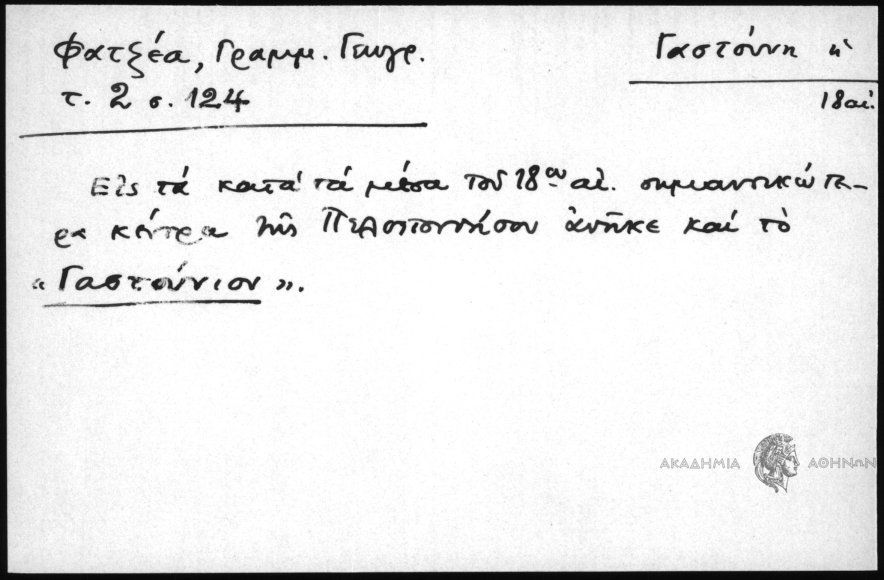 Φατζέα, Γραμμ. Γεωγρ.
τ. 2 σ. 124
Γαστούνη ἡ
18 αἰ.
Εἰς τά κατά τά μέσα τοῦ 18ου αἰ. σημαντικώτε-
ρα κέντρα τῆς Πελοποννήσου ἀνῆκε καί τὸ
«Γαστούνιον».
ΑΚΑΔΗΜΙΑ ΑΘΗΝΩΝ